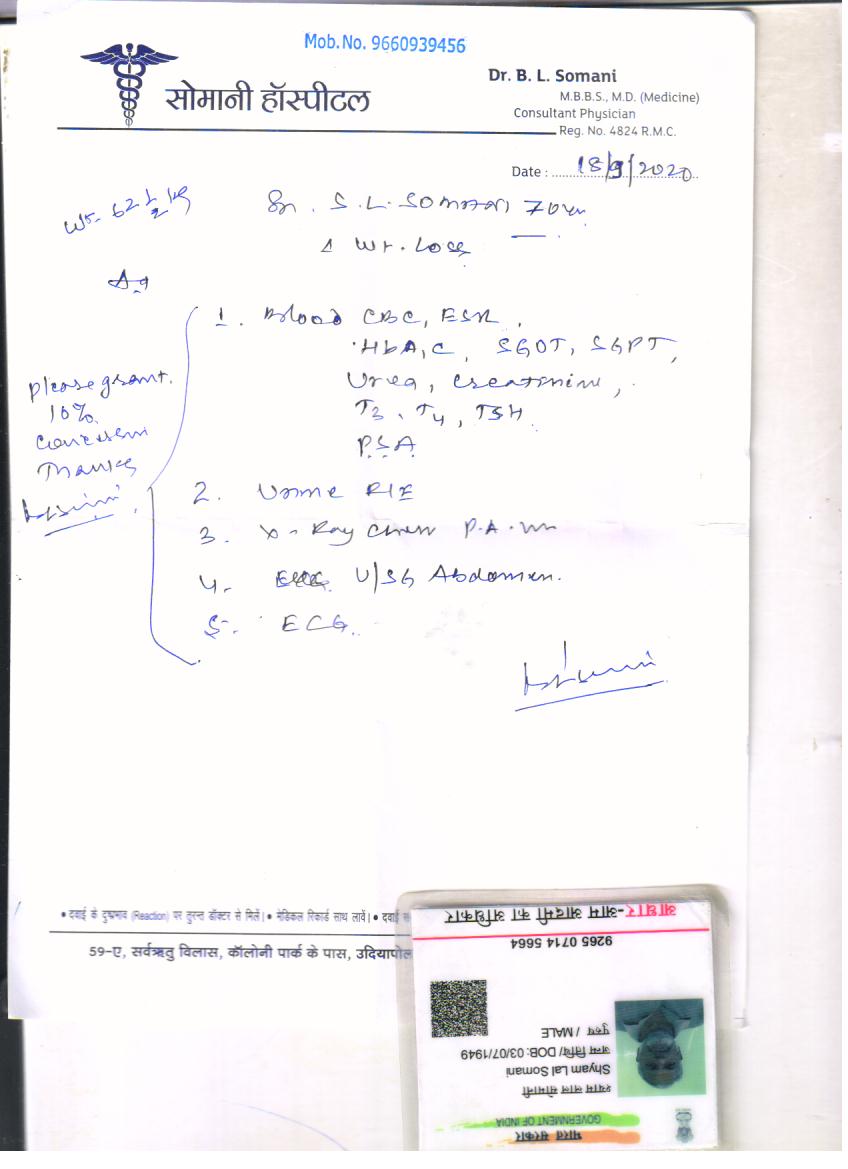 Mob.No. 9660939456
सोमानी हॉस्पीटल
Dr. B. L. Somani
M.B.B.S., M.D. (Medicine)
Consultant Physician
Reg. No. 4824 R.M.C.
Date : 18/9/2020
Wt. 62 1/2 kg
S.L. SOMANI 70
Wt. Loss
1. Blood CBC, ESR,
HbA1C, SGOT, SGPT,
Urea, Creatinine,
T3, T4, TSH
PSA
Please grant
10%
Concession
Thanks
2. Urine R/E
3. X-Ray Chest P.A.
4. U/SG Abdomen.
5. ECG.
• दवाई के दुष्प्रभाव (Reaction) पर तुरन्त डॉक्टर से मिलें। • मेडिकल रिकार्ड साथ लावें। • दवाई
59-ए, सर्वऋतु विलास, कॉलोनी पार्क के पास, उदियापोल
भारत सरकार
GOVERNMENT OF INDIA
श्याम लाल सोमानी
Shyam Lal Somani
जन्म तिथि/ DOB: 03/07/1949
पुरुष / MALE
9265 0714 5664
आधार-आम आदमी का अधिकार